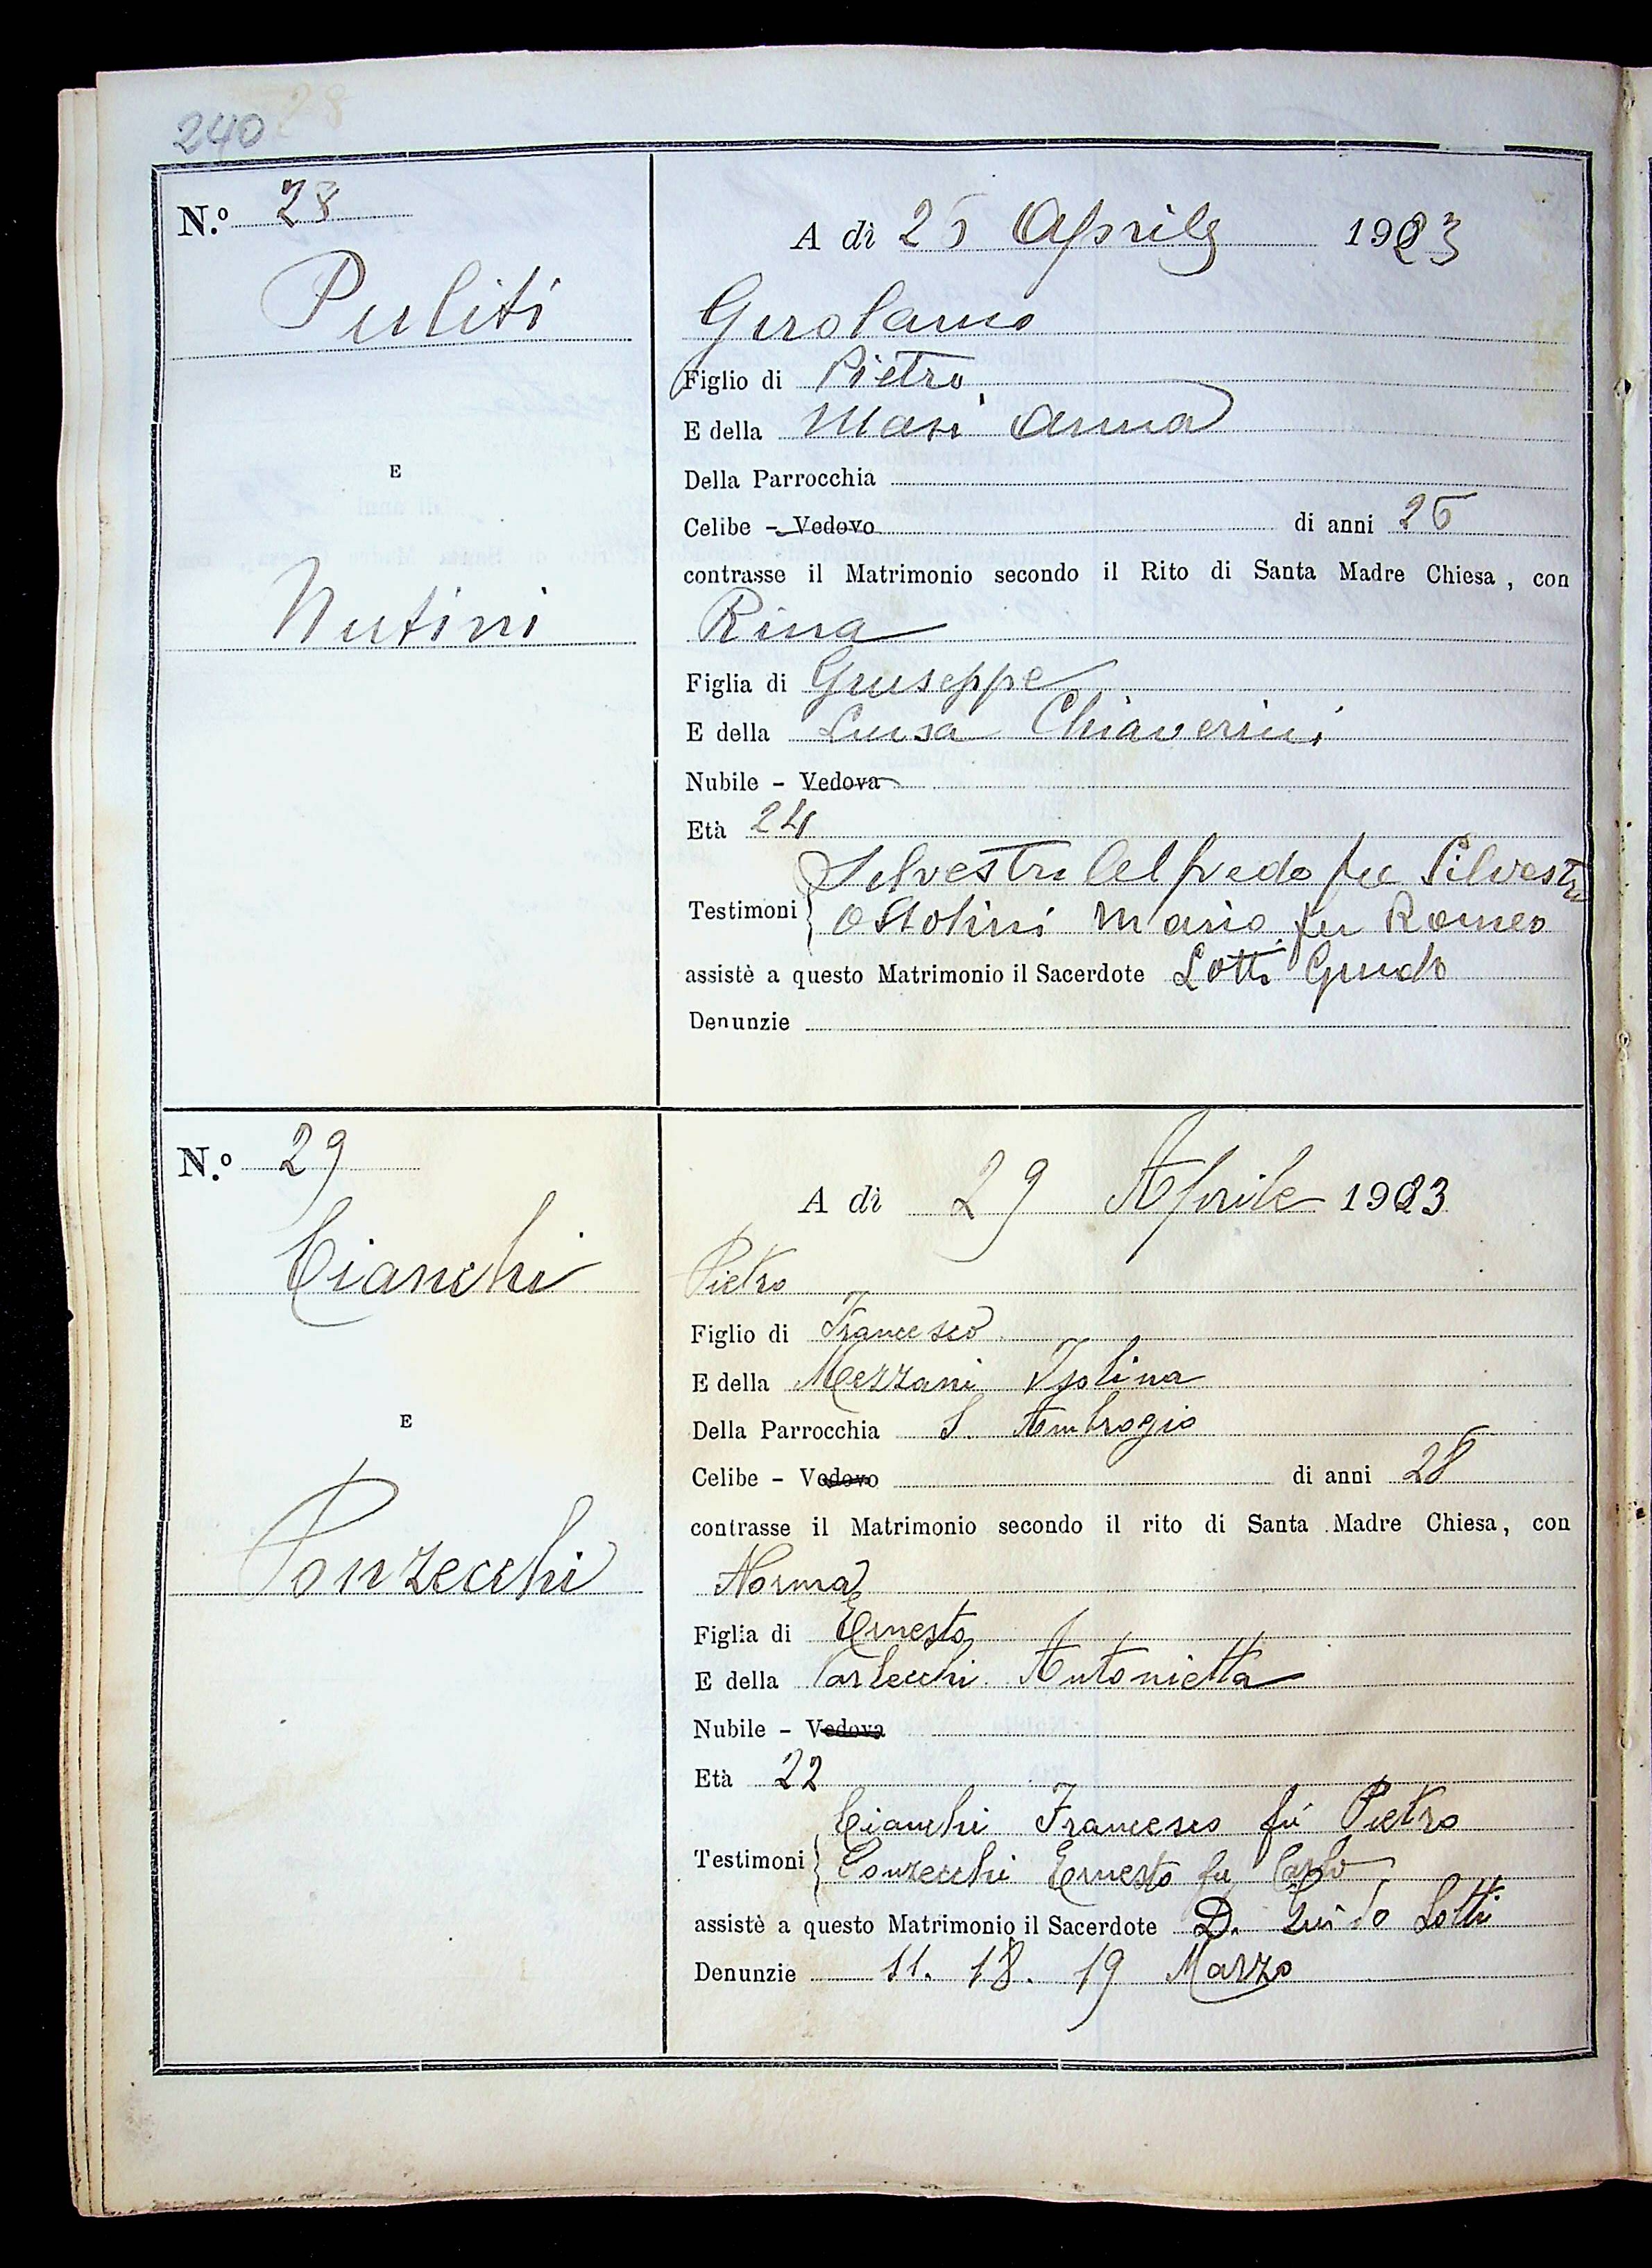 240 28
N.º 28
A dì 25 Aprile 1923
Puliti
Girolamo
Figlio di Pietro
E della Masi Anna
E
Della Parrocchia
Celibe - Vedovo di anni 26
contrasse il Matrimonio secondo il Rito di Santa Madre Chiesa, con
Nutini
Rina
Figlia di Giuseppe
E della Luisa Chiaverini
Nubile - Vedova
Età 24
Silvestri Alfredo fu Silvestro
Testimoni
Mario fu Romeo
assistè a questo Matrimonio il Sacerdote Lotti Guido
Denunzie
N.º 29
A dì 29 Aprile 1923
Cianchi
Pietro
Figlio di Francesco
E della Mezzani Isolina
E
Della Parrocchia S. Ambrogio
Celibe - Vedovo di anni 28
contrasse il Matrimonio secondo il rito di Santa Madre Chiesa, con
Ponzecchi
Norma
Figlia di Ernesto
E della Carlecchi Antonietta
Nubile - Vedova
Età 22
Cianchi Francesco fù Pietro
Testimoni
Ponzecchi Ernesto fu Carlo
assistè a questo Matrimonio il Sacerdote D. Guido Lotti
Denunzie 11. 18. 19 Marzo